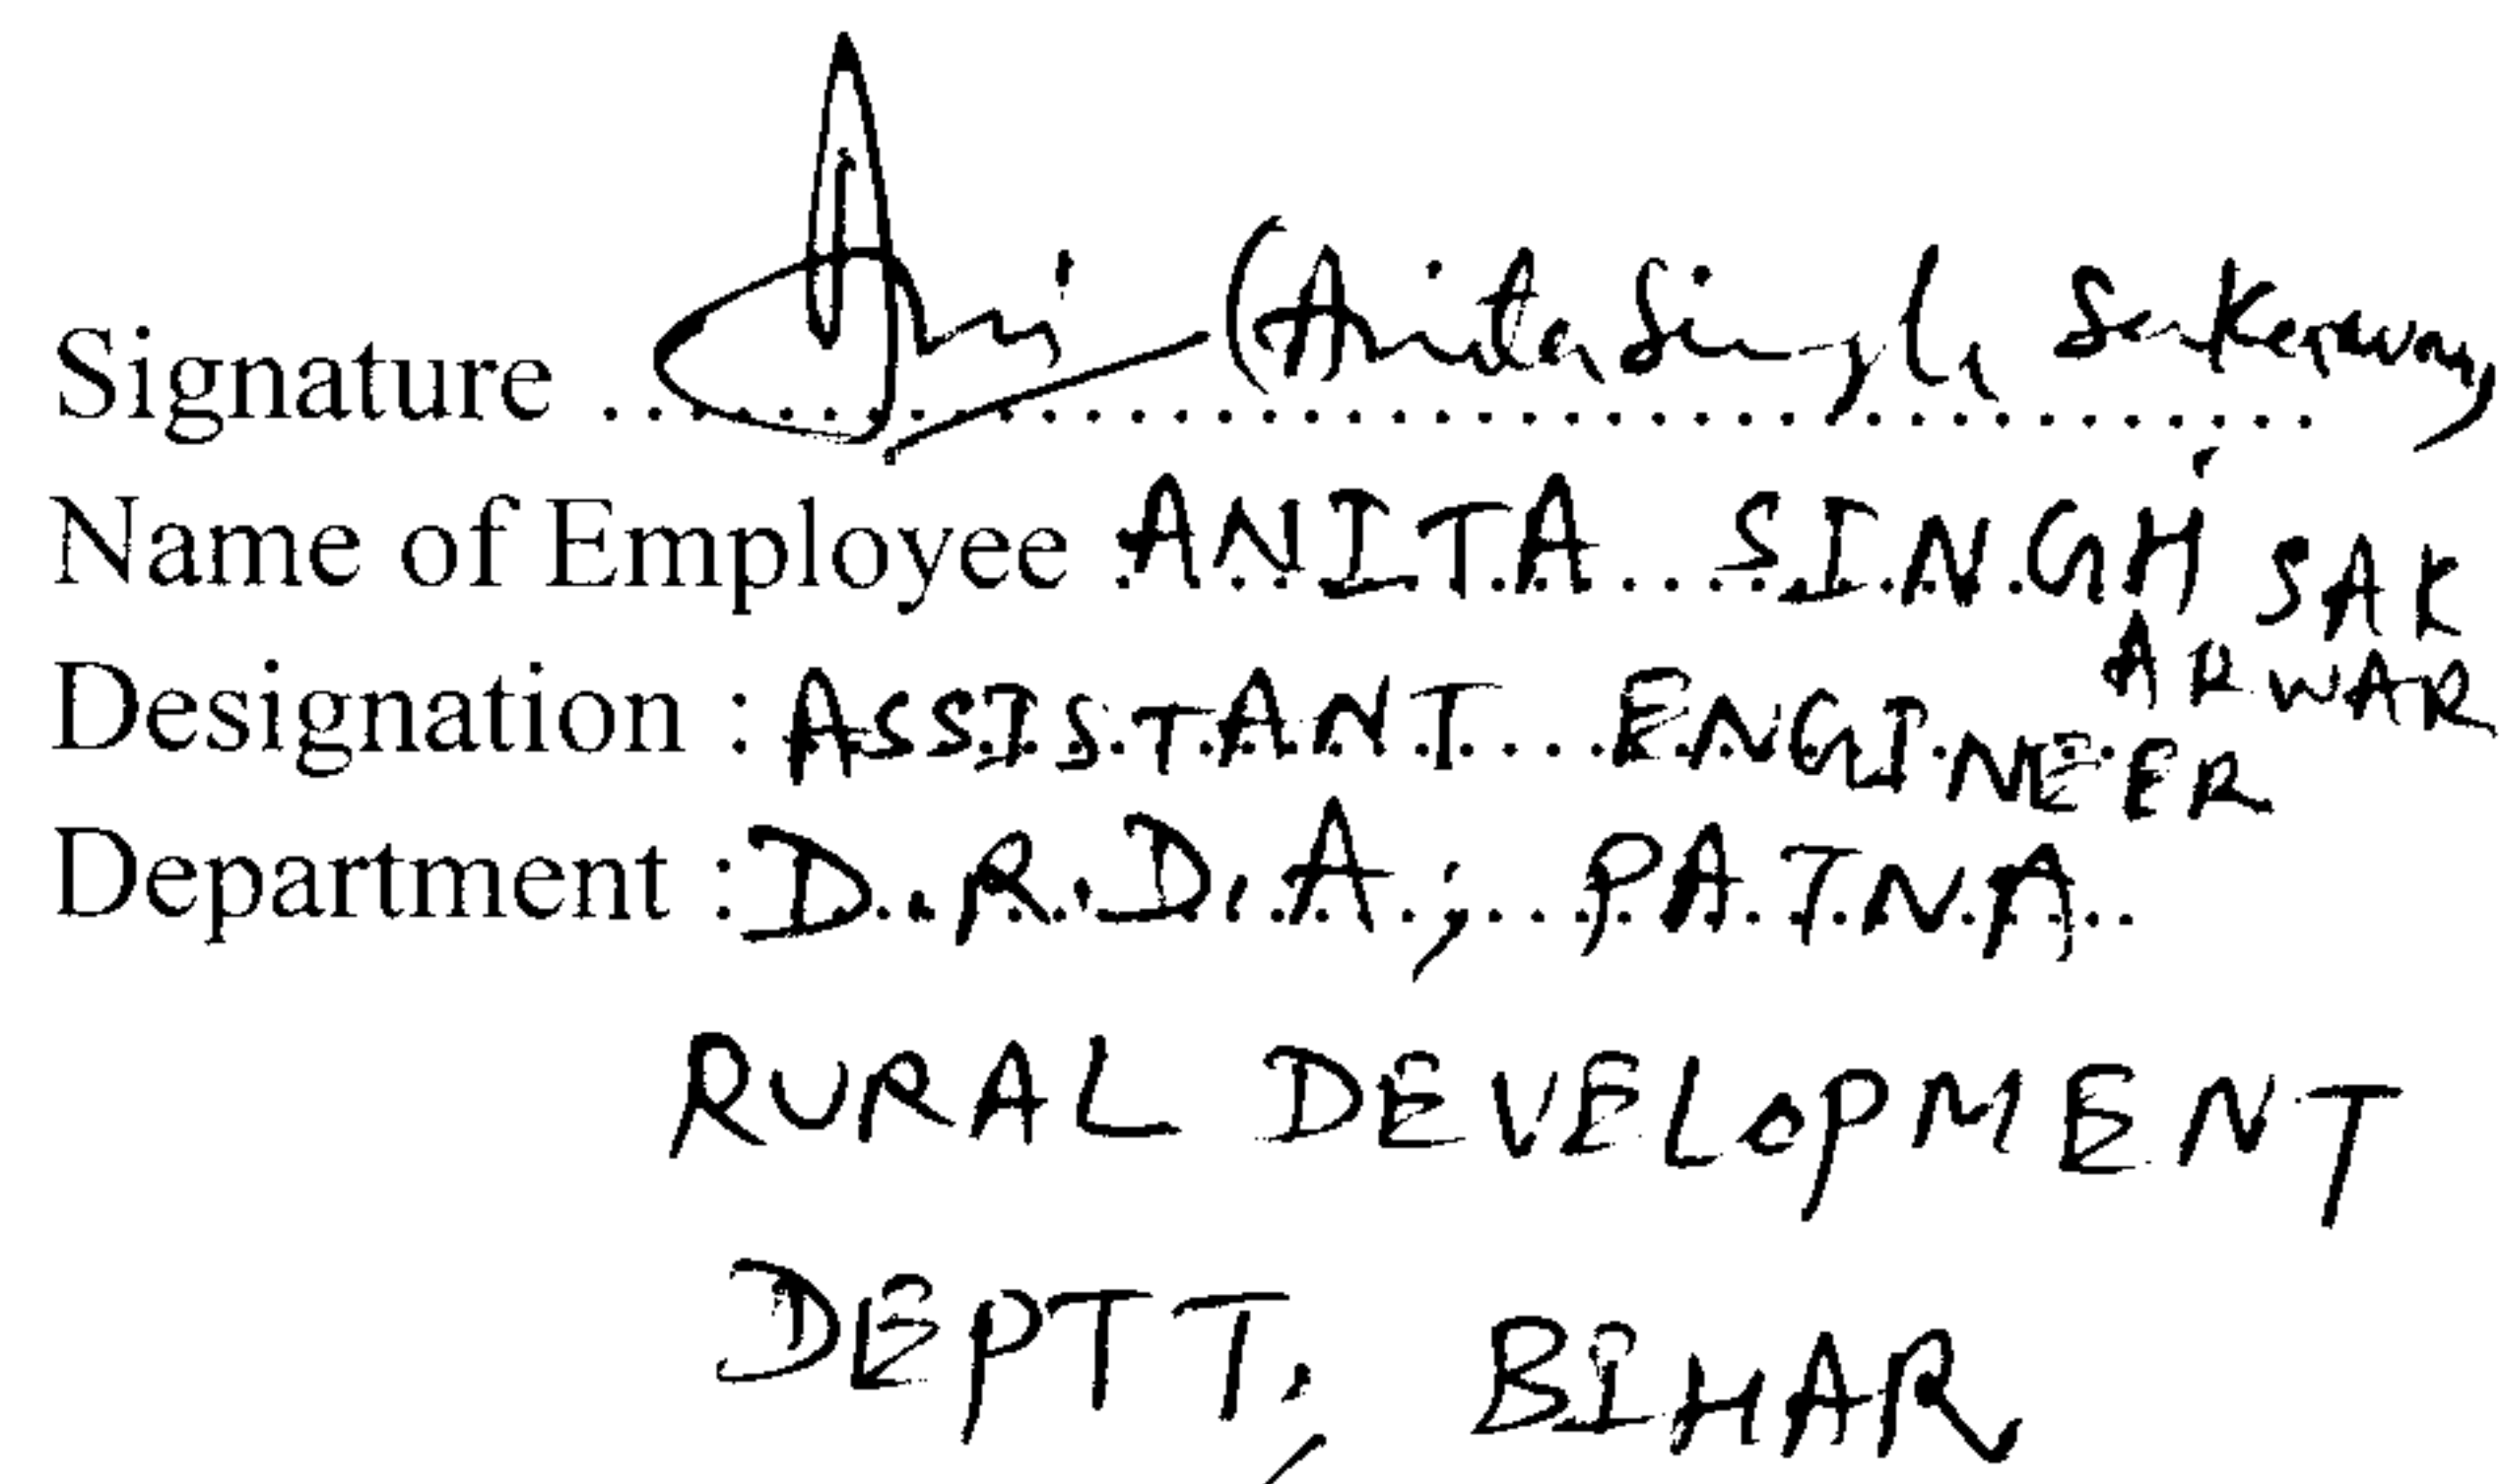 Signature (Anita Singh
Name of Employee ANITA SINGH SAK
ARWAR
Designation : ASSISTANT ENGINEER
Department : D.R.D.A; PATNA
RURAL DEVELOPMENT
DEPTT; BIHAR